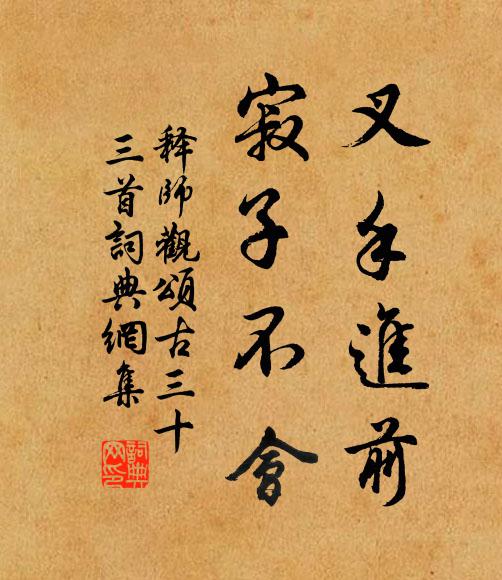 叉手進前
寂子不會
释師觀頌古三十
三首詞典網集
詞典網印